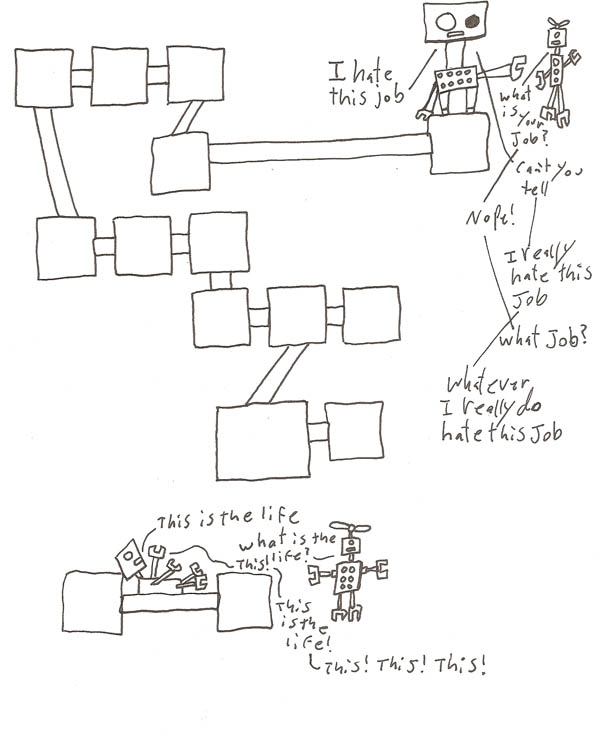 I hate
this job
what
is
your
Job?
Can't you
tell
Nope!
I really
hate this
Job
what Job?
whatever
I really do
hate this Job
This is the life
what is the
life?
This!
This
is the
life!
This! This! This!